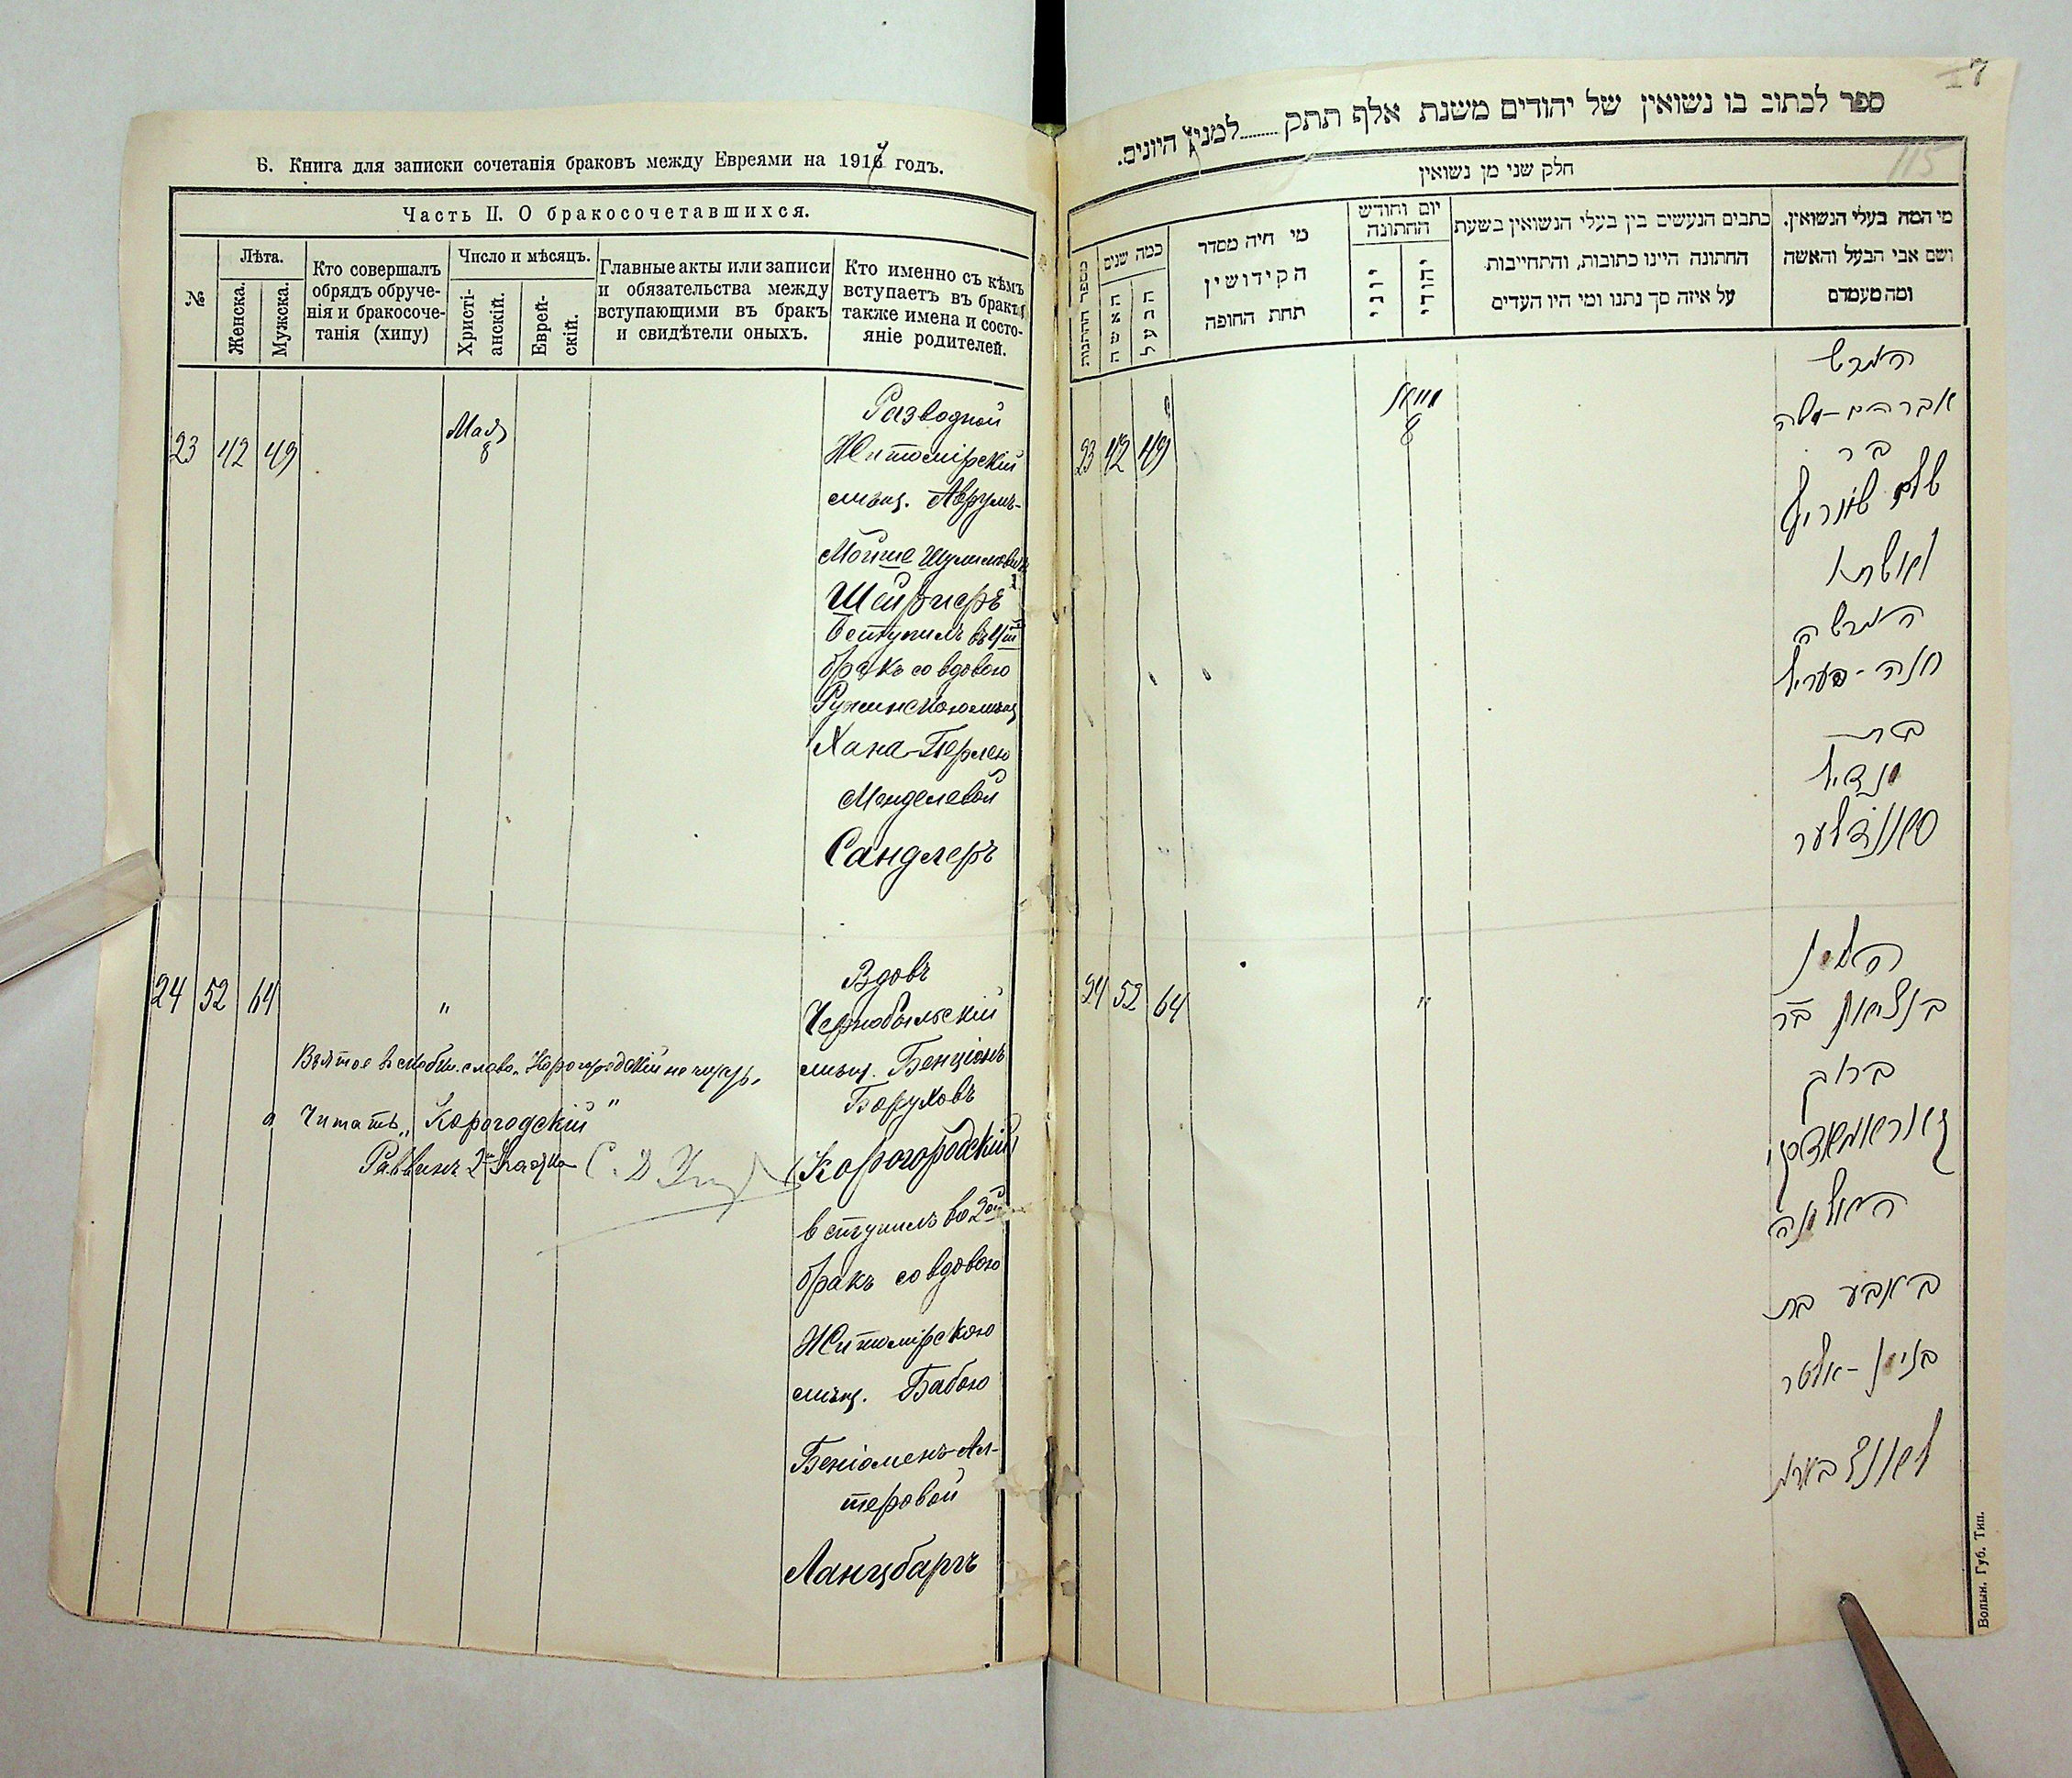 В. Книга для записки сочетанія браковъ между Евреями на 1917 годъ.
Часть II. О бракосочетавшихся.
№
Лѣта.
Женска.
Мужска.
Кто совершалъ
обрядъ обруче-
нія и бракосоче-
танія (хипу)
Число и мѣсяцъ.
Христі-
анскій.
Еврей-
скій.
Главные акты или записи
и обязательства между
вступающими въ бракъ
и свидѣтели оныхъ.
Кто именно съ кѣмъ
вступаетъ въ бракъ,
также имена и состо-
яніе родителей.
23 42 49
Мая
8
Разводной
Житомірскій
мѣщ. Аврумъ-
Мойше Шулимовичъ
вступилъ въ
бракъ со вдовою
Ружинскою мѣщ
Хана-Перлею
Менделевой
Сандлеръ
24 52 64
"
Вдовъ
Чернобыльскій
мѣщ. Бенціонъ
Боруховъ
Корогородскій
вступилъ во 2ой
бракъ со вдовою
Житомірскою
мѣщ. Бабою
Беніоменъ-Ал-
теровой
Ланцбаргъ
Взятое в скобки слово "Корогородскій не читать,
а читать "Корогодскій"
Раввинъ
7
115
ספר לכתוב בו נשואין של יהודים משנת אלף תתק........למנין היונים.
חלק שני מן נשואין
מספר החתנות
כמה שנים
האשה
הבעל
מי חיה מסדר
הקידושין
תחת החופה
יום וחודש
החתונה
יוני
יהודי
כתבים הנעשים בין בעלי הנשואין בשעת
החתונה היינו כתובות, והתחייבות
על איזה סך נתנו ומי היו העדים
מי המה בעלי הנשואין.
ושם אבי הבעל והאשה
ומה מעמדם
23 42 49
מאי
8
הגרש
אברהם-משה
ב ר
הגרשה
חנה-פעריל
בת
סאנדלער
24 52 64
"
האלמן
בנציון בר
ברוך
האלמנה
באבע בת
בנימן-אלטר
לאנצבארג
Волын. Губ. Тип.